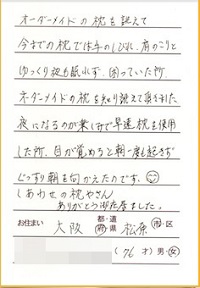 オーダーメイドの枕を誂えて
今までの枕で は手のしびれ、肩のこりと
ゆっくり夜も眠れず、困っていた所
オーダーメイドの枕を知り誂えて頂きました
夜になるのが楽しみで早速枕を使用
した所、目が覚めると朝一度も起きず
ぐっすり朝を向かえたのです。
しあわせの枕やさん
ありがとう御座居ました。
お住まい 大阪 都・道・府・県 松原 市・区
(76才) 男・女